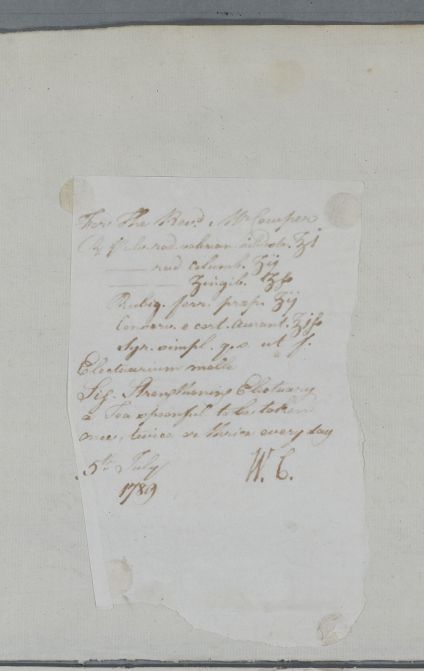 For The Revd. Mr Cowper
℞ Pulv. rad. valerian. sylvestr. ʒj
——— rad Columb. ʒij
——— Zingib. ʒſs
Rubig. ferr. præp. ʒij
Conserv. e cort. Aurant. ℥jſs
Syr. simpl. q. s. ut f.
Electuarium molle
Sig. Strengthening Electuary
a Tea spoonful to be taken
once, twice or thrice every day
5th July
1789
W. C.